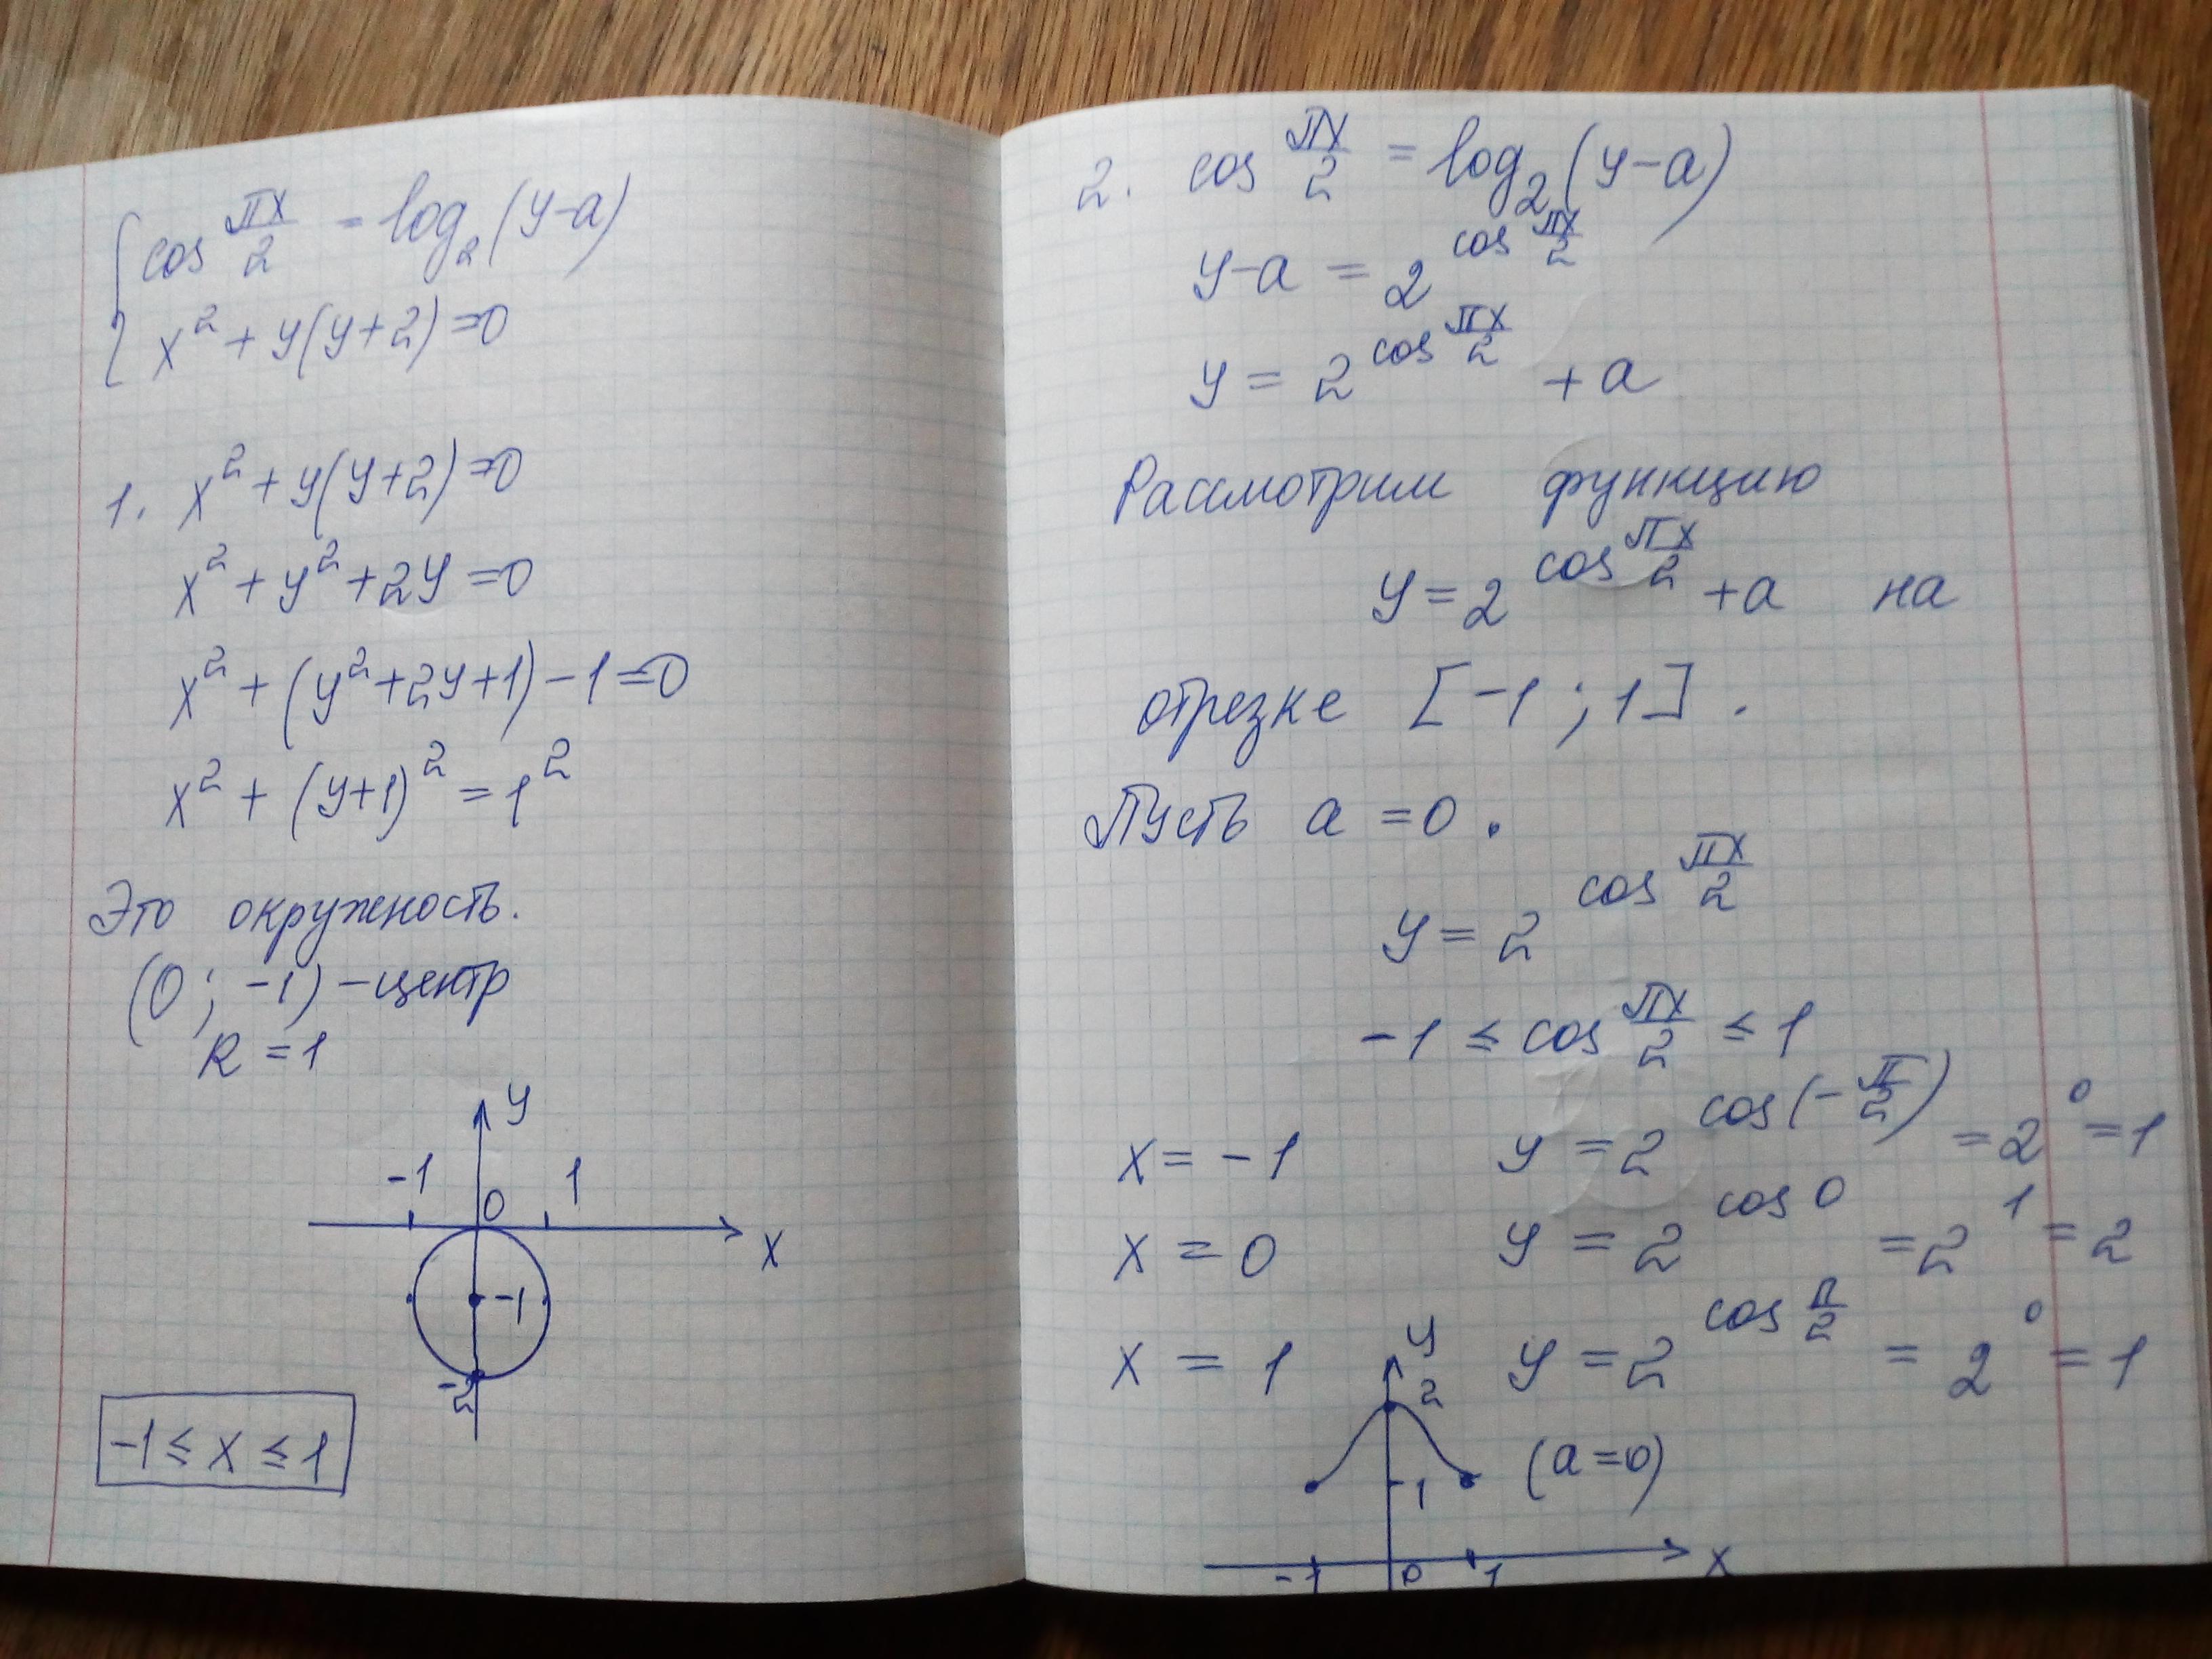 cos πx/2 = log₂(y-a)
x² + y(y+2) = 0
1. x² + y(y+2) = 0
x² + y² + 2y = 0
x² + (y² + 2y + 1) - 1 = 0
x² + (y+1)² = 1²
Это окружность.
(0; -1) - центр
R = 1
y
-1 0 1
x
-1
-2
-1 ≤ x ≤ 1
2. cos πx/2 = log₂(y-a)
y-a = 2^(cos πx/2)
y = 2^(cos πx/2) + a
Рассмотрим функцию
y = 2^(cos πx/2) + a на
отрезке [-1; 1].
Пусть a = 0.
y = 2^(cos πx/2)
-1 ≤ cos πx/2 ≤ 1
x = -1 y = 2^(cos(-π/2)) = 2⁰ = 1
x = 0 y = 2^(cos 0) = 2¹ = 2
x = 1 y = 2^(cos π/2) = 2⁰ = 1
y
2
1 (a=0)
-1 0 1 x